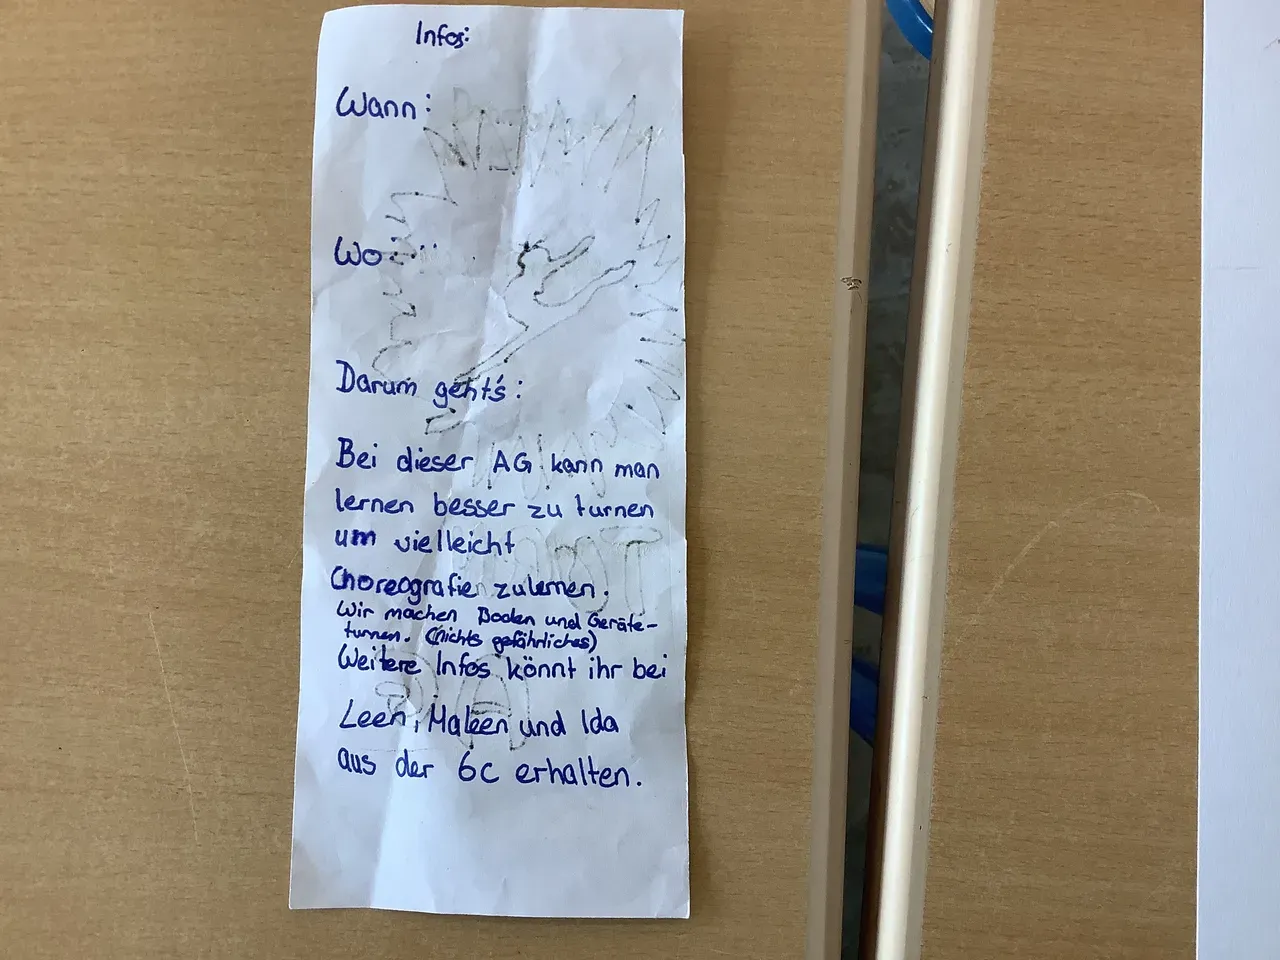 Infos:
Wann:
Wo:
Darum geht's:
Bei dieser AG kann man
lernen besser zu turnen
um vielleicht
Choreografien zulernen.
Wir machen Boden und Geräte-
turnen. (nichts gefährliches)
Weitere Infos könnt ihr bei
Leen, Maleen und Ida
aus der 6c erhalten.